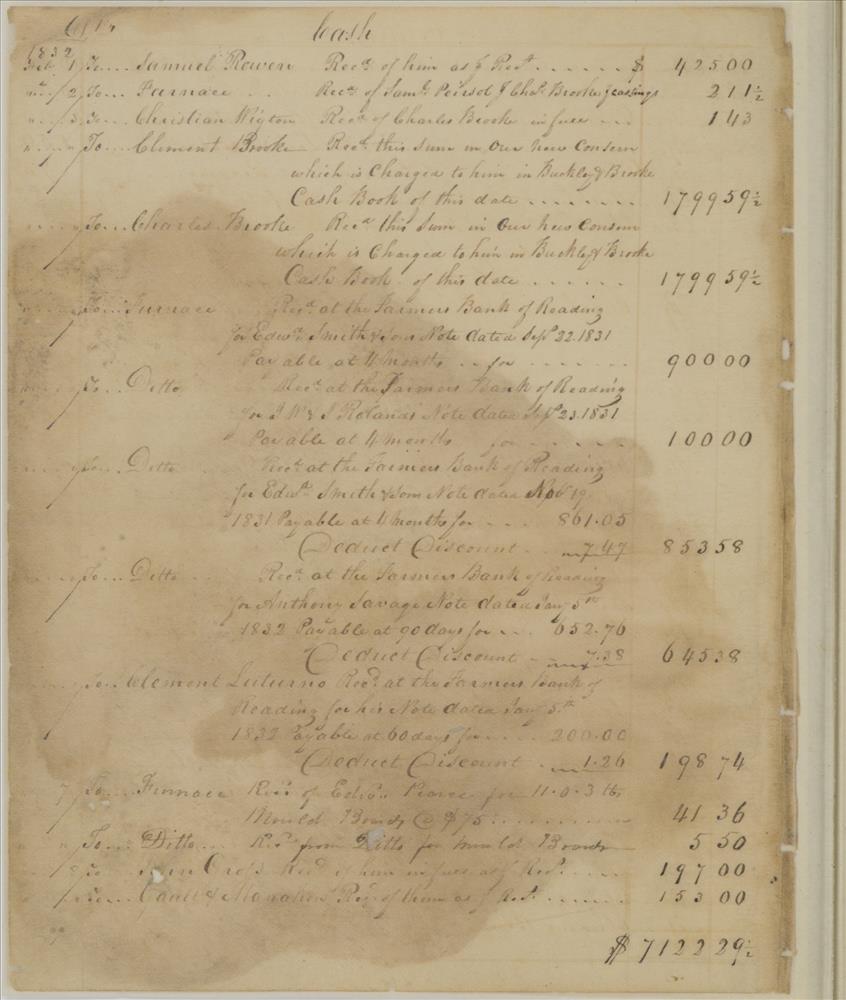 Cash
1832
Feb 1 To Samuel Rowen Recd of him as p Rect $ 425 00
" 2 To Furnace Recd of Saml Peirsol & Chas Brooke f castings 2 11½
" 3 To Christian Wigton Recd of Charles Brooke in full 1 43
" " To Clement Brooke Recd this Sum in Our new Consern
which is Charged to him in Buckley & Brooke
Cash Book of this date 1799 59½
" " To Charles Brooke Recd this Sum in Our new Consern
which is Charged to him in Buckley & Brooke
Cash Book of this date 1799 59½
" " To Furnace Recd at the Farmers Bank of Reading
for Edwd Smith & Sons Note dated Sept 22 1831
Payable at 4 months for 900 00
To Ditto Recd at the Farmers Bank of Reading
for J W & S Rolands Note dated Sept 23 1831
Payable at 4 months for 100 00
To Ditto Recd at the Farmers Bank of Reading
for Edwd Smith & Sons Note dated Novr 19
1831 Payable at 4 months for 861.05
Deduct Discount 7.47 853 58
To Ditto Recd at the Farmers Bank of Reading
for Anthony Savage Note dated Jany 5th
1832 Payable at 90 days for 652.76
Deduct Discount 7.38 645 38
To Clement Recd at the Farmers Bank of
Reading for his Note dated Jany 5th
1832 Payable at 60 days for 200.00
Deduct Discount 1.26 198 74
7 To Furnace Recd of Edwd Pearce for 11.0.3 lbs
Mould Boards @ $75 41 36
" To Ditto Recd from Ditto for Mould Boards 5 50
8 To Recd of him in full as p Rect 197 00
To & Monahon Recd of them as p Rect 153 00
$ 7122 29½